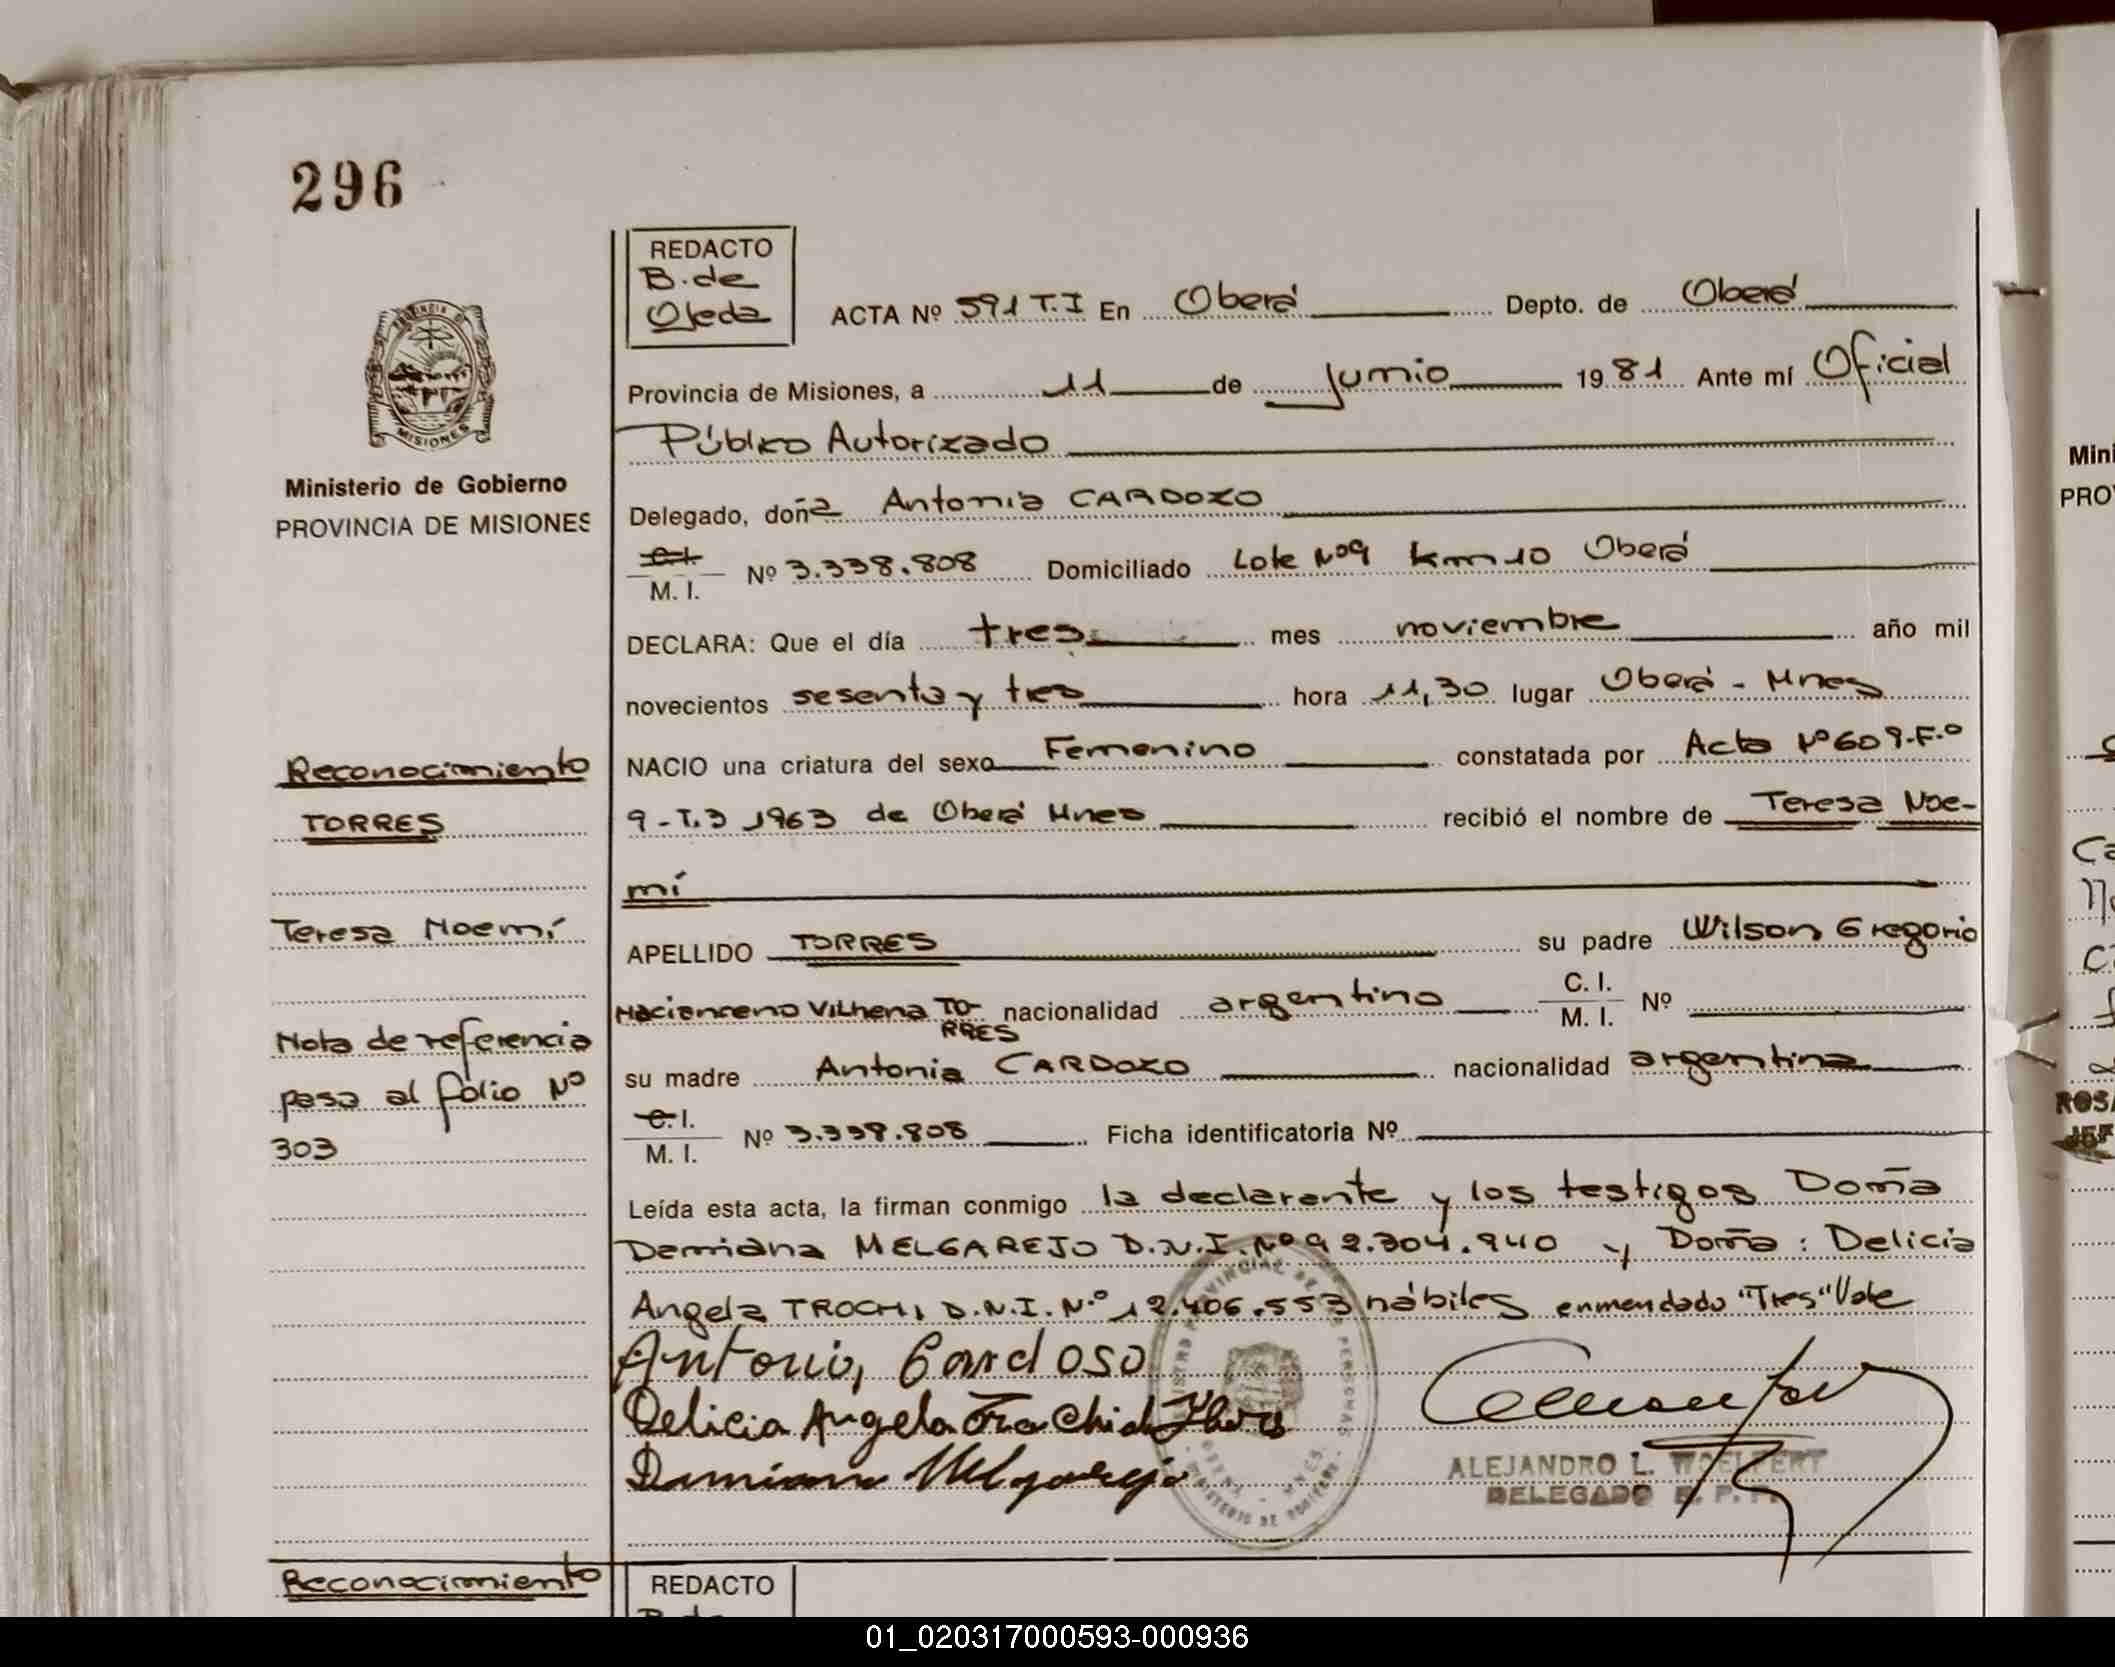 296
REDACTO
B. de
Ojeda
ACTA Nº 591 T.I En Oberá Depto. de Oberá
Provincia de Misiones, a 11 de Junio 1981 Ante mí Oficial
Público Autorizado
Delegado, doña Antonia CARDOZO
C.I.
M. I. Nº 3.338.808 Domiciliado Lote Nº9 km 10 Oberá
DECLARA: Que el día tres mes noviembre año mil
novecientos sesenta y tres hora 11,30 lugar Oberá - Mnes
NACIO una criatura del sexo Femenino constatada por Acta Nº 609-Fº
9-T.3 1963 de Oberá Mnes recibió el nombre de Teresa Noe-
mí
APELLIDO TORRES su padre Wilson Gregorio
Nacianceno Vilhena TO-
RRES nacionalidad argentino C. I.
M. I. Nº
su madre Antonia CARDOZO nacionalidad argentina
C.I.
M. I. Nº 3.338.808 Ficha identificatoria Nº
Leída esta acta, la firman conmigo la declarante y los testigos Doña
Damiana MELGAREJO D.N.I. Nº 92.304.940 y Doña: Delicia
Angela TROCHI D.N.I. Nº 12.406.553 hábiles enmendado "Tres" Vale
Antonia, Cardoso
Delicia Angela
Damiana Melgarejo
ALEJANDRO L. WOELFERT
DELEGADO
PROVINCIA DE
MISIONES
Ministerio de Gobierno
PROVINCIA DE MISIONES
Reconocimiento
TORRES
Teresa Noemí
Nota de referencia
pasa al folio Nº
303
Reconocimiento
REDACTO
B. de
Mini
PRO
ROSA
JEF
01_020317000593-000936